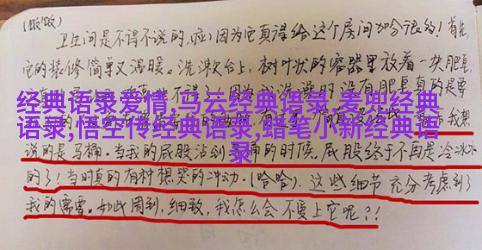 (嗷嗷)
卫生间是不得不说的，啦！因为它真得给这个房间加分很多！首先，
它的装修简单又温暖。洗漱台上，树叶状的容器里放着一块肥皂，
不得了。因为我洗澡时没有肥皂真的是
经典语录爱情,马云经典语录,麦兜经典
语录,悟空传经典语录,蜡笔小新经典语
录
我想
说的是马桶，当我的屁股沾到 的时候，屁股终于不再是冷冰冰
的了！当时真的有种想哭的冲动，(哈哈)。这些细节充分考虑到了
我的需要。如此周到，细致，我怎么会不爱上它呢？！